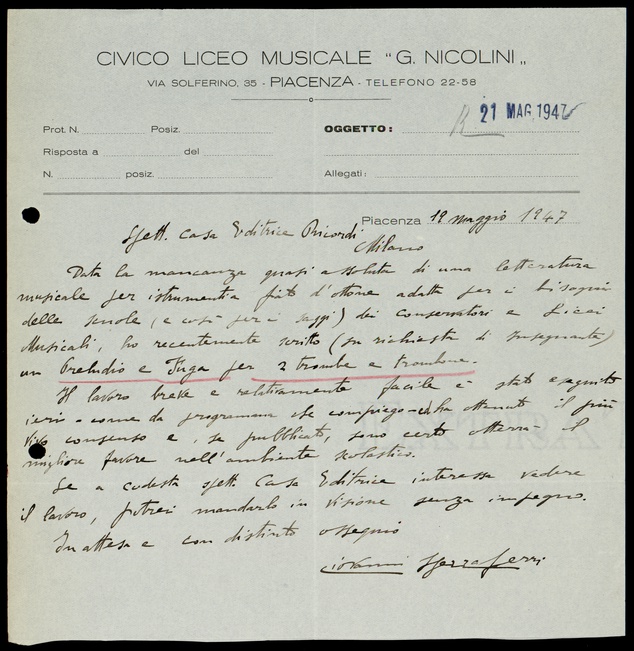 CIVICO LICEO MUSICALE “G. NICOLINI„
VIA SOLFERINO, 35 - PIACENZA - TELEFONO 22-58
Prot. N. Posiz. OGGETTO: R 21 MAG. 1947
Risposta a del
N. posiz. Allegati:
Piacenza 19 maggio 1947
Spett. Casa Editrice Ricordi
Milano
Data la mancanza quasi assoluta di una letteratura
musicale per istrumenti a fiato d'ottone adatta per i bisogni
delle scuole (e così per i saggi) dei Conservatori e Licei
Musicali, ho recentemente scritto (su richiesta di Insegnante)
un Preludio e Fuga per 2 trombe e trombone.
Il lavoro breve e relativamente facile è stato eseguito
ieri - come da programma che compiego - ed ha ottenuto il più
vivo consenso e, se pubblicato, sono certo otterrà il
migliore favore nell'ambiente scolastico.
Se a codesta Spett Casa Editrice interessa vedere
il lavoro, potrei mandarlo in visione senza impegno.
In attesa e con distinto ossequio
Giovanni Spezzaferri